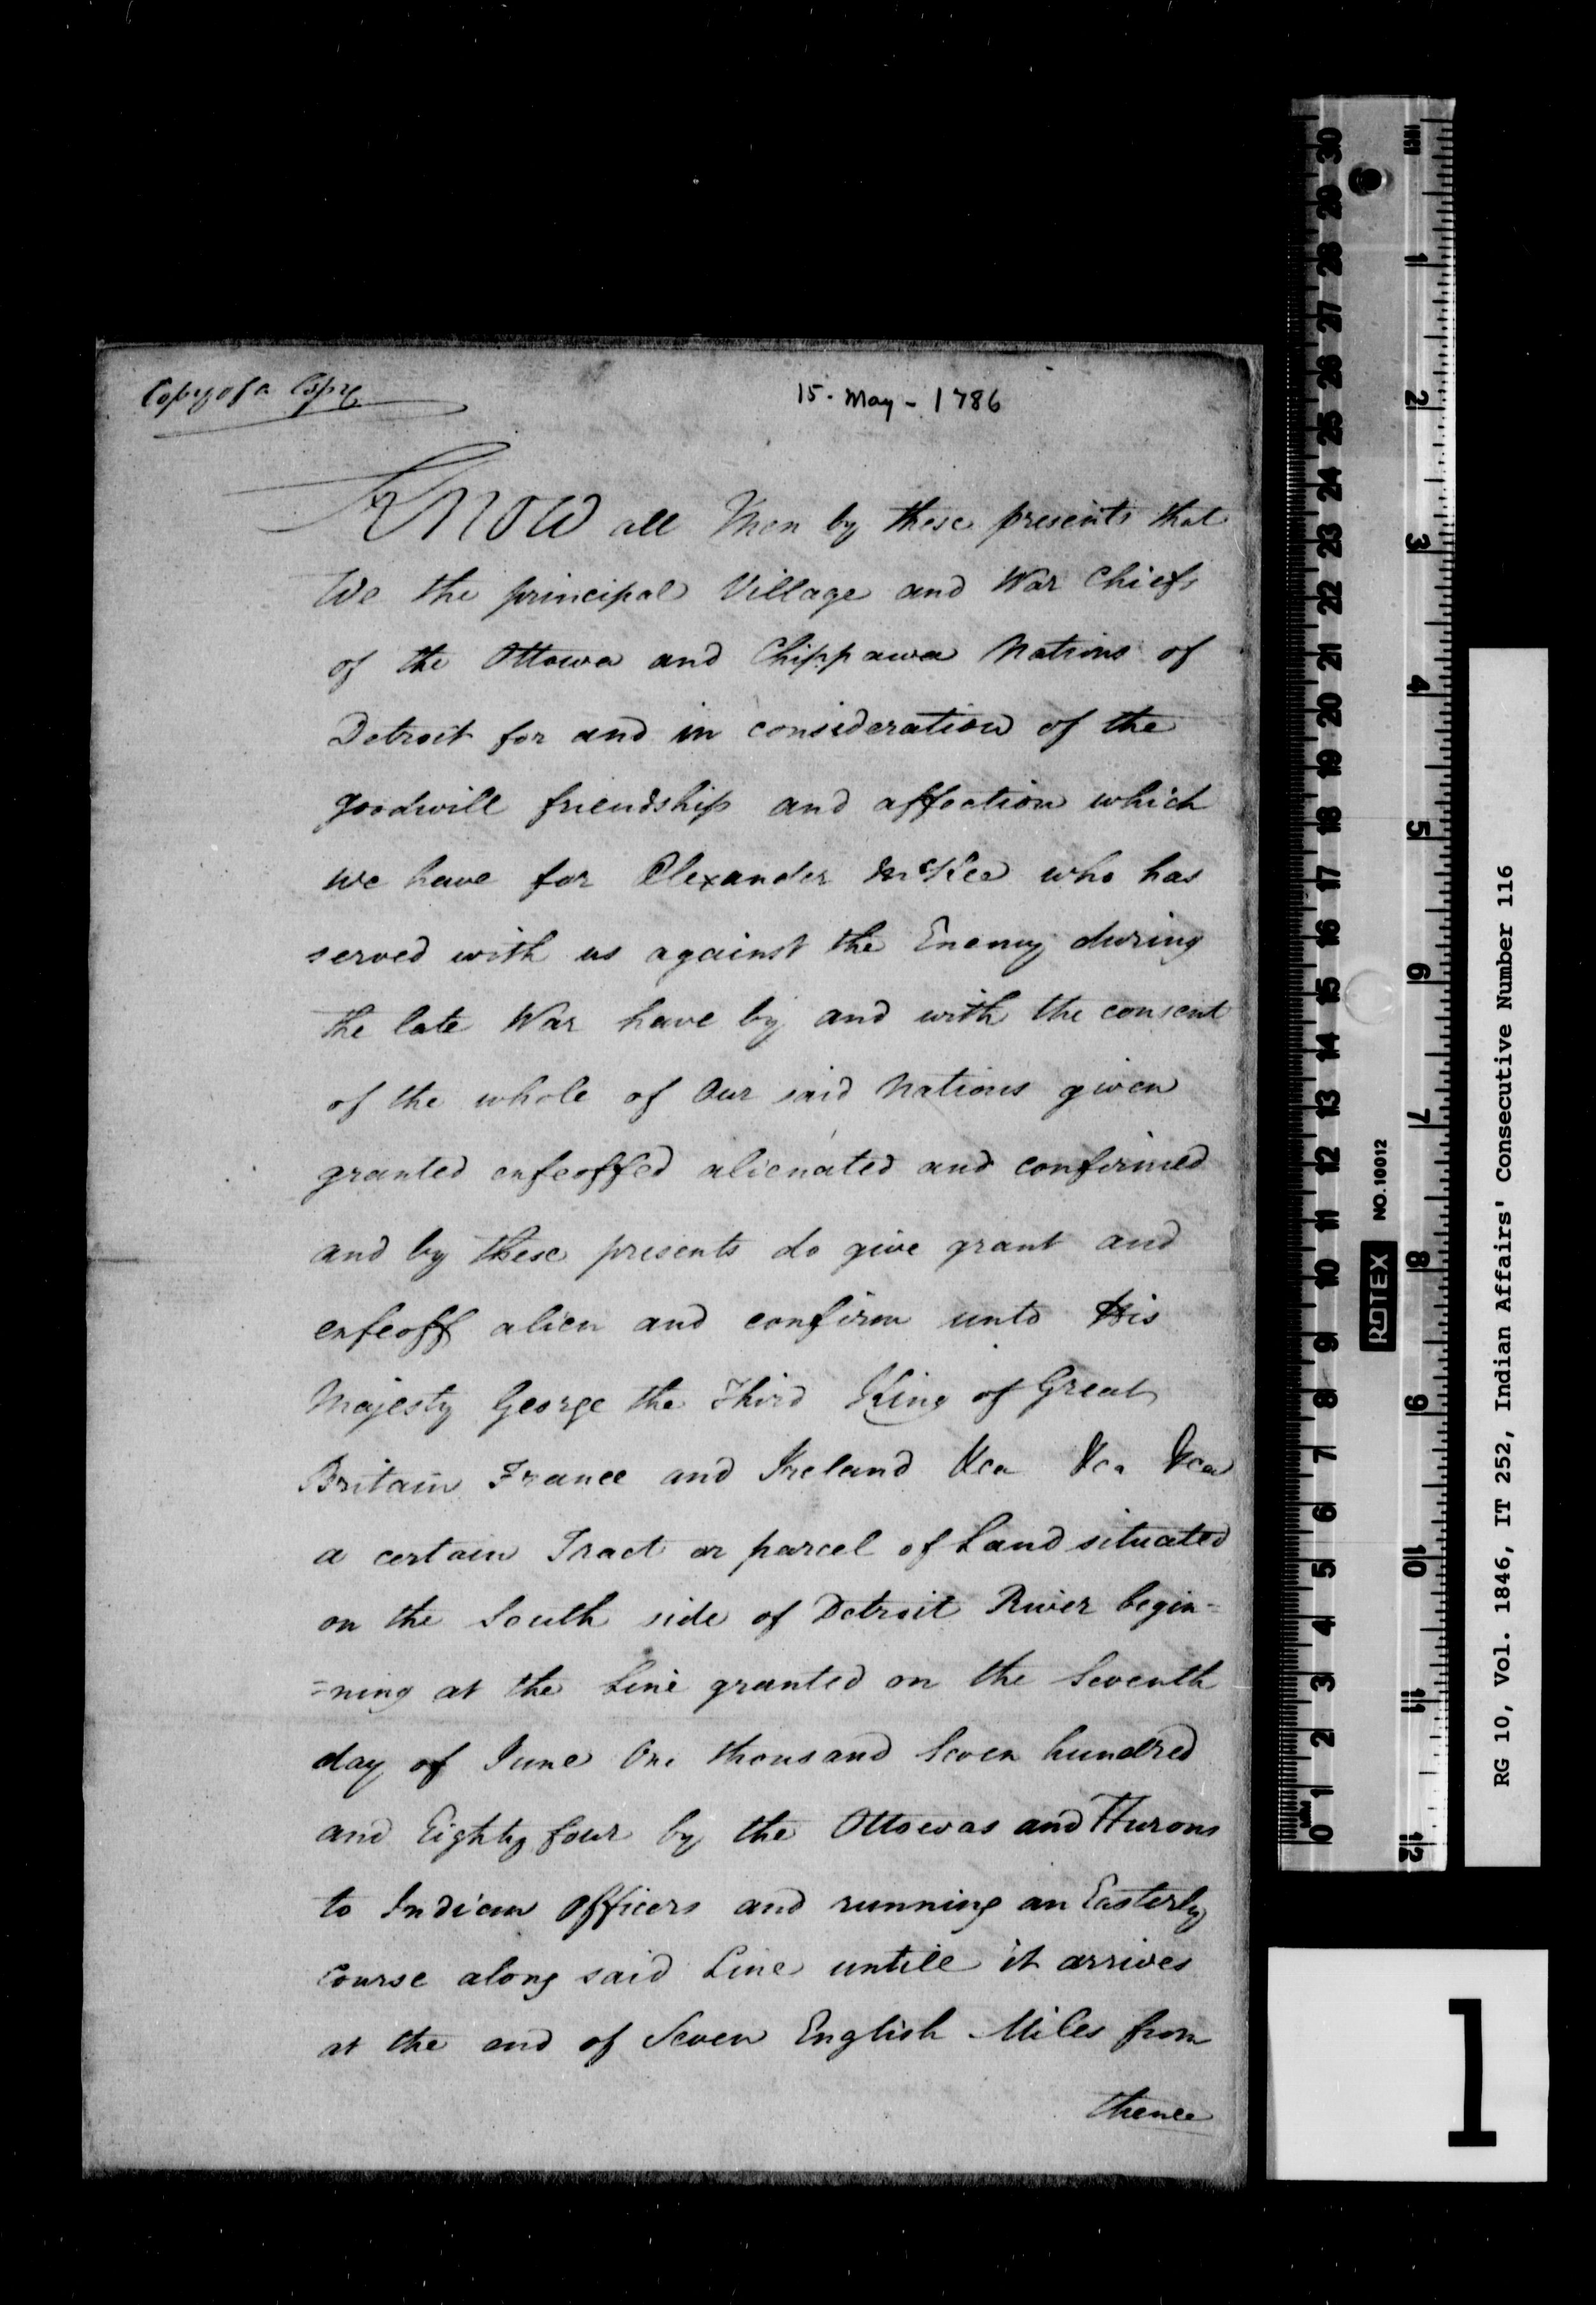 Copy of a Copy
15 - May - 1786
Know all Men by these presents that
We the principal Village and War Chiefs
of the Ottawa and Chippawa Nations of
Detroit for and in consideration of the
goodwill friendship and affection which
we have for Alexander McKee who has
served with us against the Enemy during
the late War have by and with the consent
of the whole of Our said Nations given
granted enfeoffed alienated and confirmed
and by these presents do give grant and
enfeoff alien and confirm unto His
Majesty George the Third King of Great
Britain France and Ireland &ca &ca &ca
a certain Tract or parcel of Land situated
on the South side of Detroit River begin=
=ning at the Line granted on the Seventh
day of June One thousand Seven hundred
and Eighty four by the Ottowas and Hurons
to Indian Officers and running an Easterly
course along said Line untill it arrives
at the end of Seven English Miles from
thence
RG 10, Vol. 1846, IT 252, Indian Affairs' Consecutive Number 116
1
ROTEX NO. 10012
30 29 28 27 26 25 24 23 22 21 20 19 18 17 16 15 14 13 12 11 10 9 8 7 6 5 4 3 2 1 0
1 2 3 4 5 6 7 8 9 10 11 12